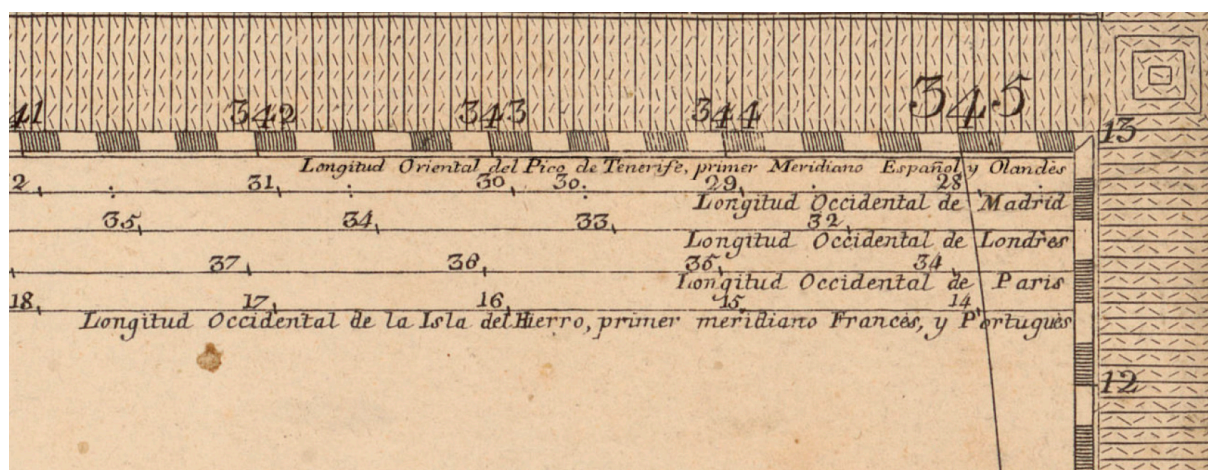 41 342 343 344 345
13
Longitud Oriental del Pico de Tenerife, primer Meridiano Español y Olandès
2 31 30 30 29 28
Longitud Occidental de Madrid
35 34 33 32
Longitud Occidental de Londres
37 36 35 34
Longitud Occidental de Paris
18 17 16 15 14
Longitud Occidental de la Isla del Hierro, primer meridiano Francès, y Portuguès
12